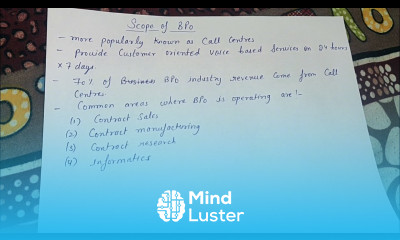 Scope of BPO
- more popularly known as Call Centres
- Provide Customer oriented Voice based Services on 24 hours
× 7 days.
- 70% of Business BPO industry revenue come from Call
Centres
- Common areas where BPO is operating are :-
(1) Contract Sales
(2) Contract manufacturing
(3) Contract research
(4) Informatics
Mind
Luster